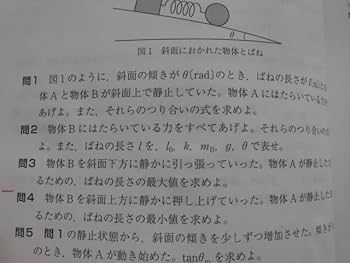 θ
図1 斜面におかれた物体とばね
問1 図1のように,斜面の傾きがθ〔rad〕のとき,ばねの長さが
体Aと物体Bが斜面上で静止していた。物体Aにはたらいている力を
あげよ。また,それらのつり合いの式を求めよ。
問2 物体Bにはたらいている力をすべてあげよ。それらのつり合いの
よ。また,ばねの長さlを,l₀,k,mB,g,θで表せ。
問3 物体Bを斜面下方に静かに引っ張っていった。物体Aが静止した
るための,ばねの長さの最大値を求めよ。
問4 物体Bを斜面上方に静かに押し上げていった。物体Aが静止した
るための,ばねの長さの最小値を求めよ。
問5 問1の静止状態から,斜面の傾きを少しずつ増加させた。傾きが
のとき,物体Aが動き始めた。tanθmを求めよ。